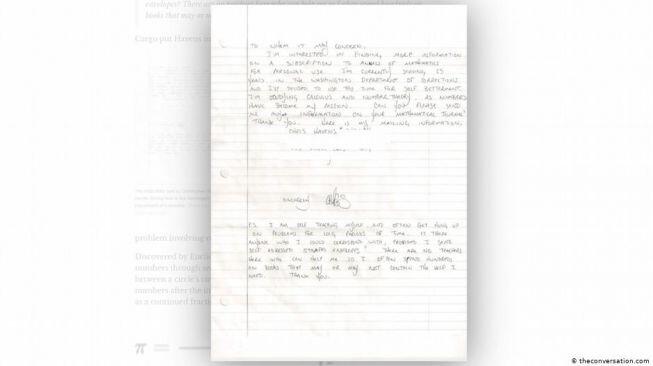 envelopes? There are no
books that may or m
Cargo put Havens in
TO WHOM IT MAY CONCERN,
I'M INTERESTED IN FINDING MORE INFORMATION
ON A SUBSCRIPTION TO ANNALS OF MATHEMATICS
FOR PERSONAL USE. I'M CURRENTLY SERVING 25
YEARS IN THE WASHINGTON DEPARTMENT OF CORRECTIONS
AND I'VE DECIDED TO USE THIS TIME FOR SELF BETTERMENT.
I'M STUDYING CALCULUS AND NUMBER THEORY, AS NUMBERS
HAVE BECOME MY MISSION. CAN YOU PLEASE SEND
ME ANY INFORMATION ON YOUR MATHEMATICAL JOURNAL?
THANK YOU. HERE IS MY MAILING INFORMATION:
CHRIS HAVENS
SINCERELY
PS. I AM SELF TEACHING MYSELF AND OFTEN GET HUNG UP
ON PROBLEMS FOR LONG PERIODS OF TIME. IS THERE
ANYONE WHO I COULD CORRESPOND WITH, PROVIDED I SEND
SELF ADDRESSED STAMPED ENVELOPES? THERE ARE NO TEACHERS
HERE WHO CAN HELP ME SO I OFTEN SPEND HUNDREDS
ON BOOKS THAT MAY OR MAY NOT CONTAIN THE HELP I
NEED. THANK YOU.
problem involving
Discovered by Eucli
numbers through
between a circle's
numbers after the
as a continued fracti
π =
© theconversation.com